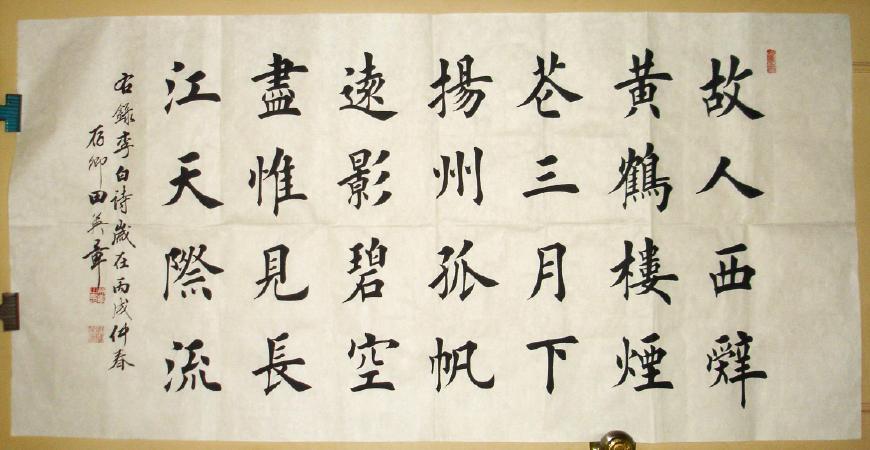 故人西辭
黄鶴樓煙
花三月下
揚州孤帆
遠影碧空
盡惟見長
江天際流
右錄李白詩歲在丙戌仲春
存卿田英章